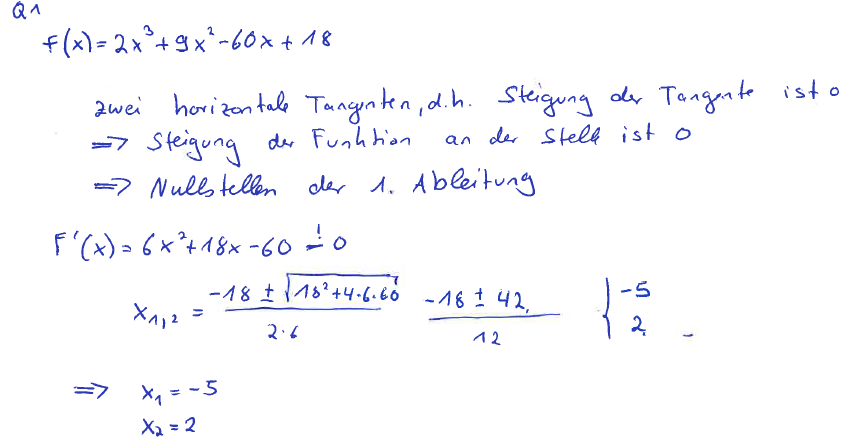 Q1
f(x) = 2x³ + 9x² - 60x + 18
zwei horizontale Tangenten, d.h. Steigung der Tangente ist 0
=> Steigung der Funktion an der Stelle ist 0
=> Nullstellen der 1. Ableitung
F'(x) = 6x² + 18x - 60 =! 0
x₁,₂ = (-18 ± √(18² + 4·6·60)) / (2·6)   (-18 ± 42) / 12   { -5 2
=> x₁ = -5
x₂ = 2